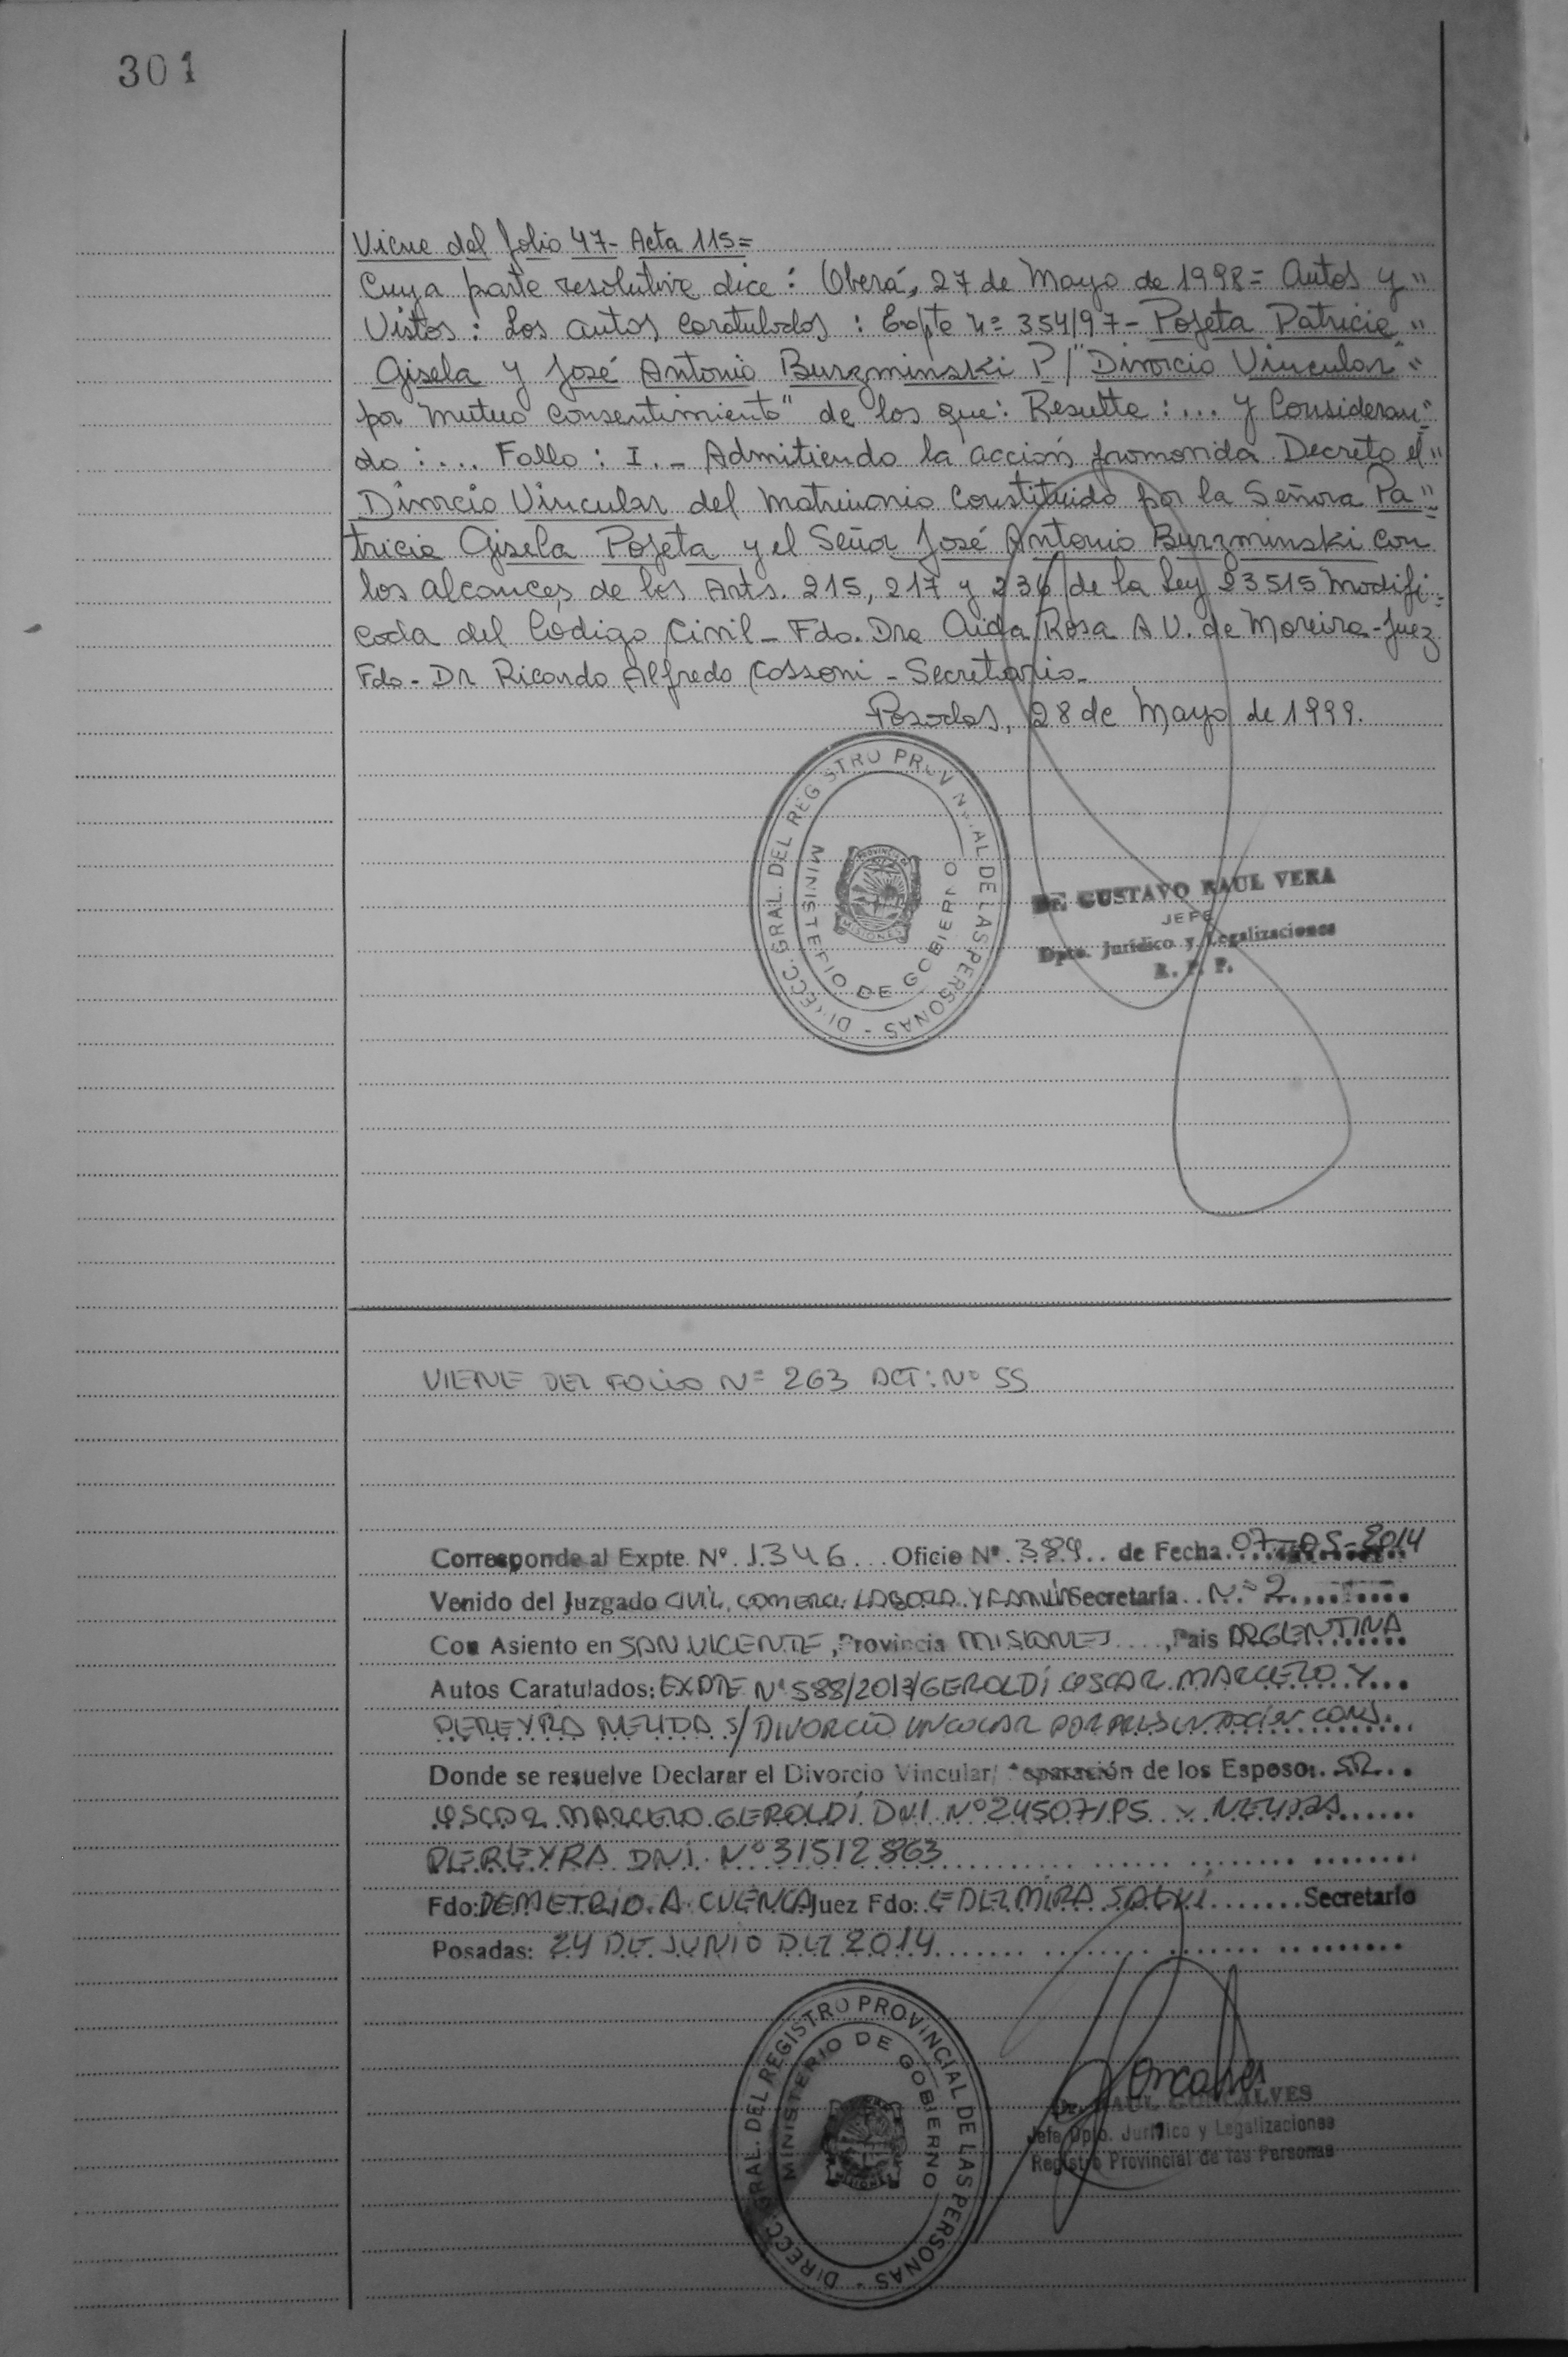 301
Viene del folio 47- Acta 115=
Cuya parte resolutiva dice: Oberá, 27 de Mayo de 1998= Autos y "
Vistos: Los autos Caratulados: Expte Nº 354/97- Pojeta Patricia "
Gisela y José Antonio Burzminski P/"Divorcio Vincular "
por Mutuo Consentimiento" de los que: Resulta: ... y Consideran"
do: ... Fallo: I.- Admitiendo la acción promovida Decreto el "
Divorcio Vincular del Matrimonio Constituido por la Señora Pa"
tricia Gisela Pojeta y el Señor José Antonio Burzminski con
los alcances de los Arts. 215, 217 y 236 de la Ley 23515 Modifi-
cada del Código Civil- Fdo. Dra Aida Rosa A V. de Moreira-Juez
Fdo- Dr Ricardo Alfredo Cossoni - Secretario-
Posadas, 28 de Mayo de 1999.
DIRECC. GRAL. DEL REGISTRO PROVINCIAL DE LAS PERSONAS -
MINISTERIO DE GOBIERNO
PROVINCIA
MISIONES
Dr. GUSTAVO RAUL VERA
JEFE
Dpto. Jurídico y Legalizaciones
R. P. P.
VIENE DEL FOLIO Nº 263 ACT: Nº 55
Corresponde al Expte. Nº 1346 Oficio Nº 389 de Fecha 07-05-2014
Venido del Juzgado CIVIL, COMERCI. LABORA. Y FAMILI Secretaría Nº 2
Con Asiento en SAN VICENTE, Provincia MISIONES, Pais ARGENTINA
Autos Caratulados: EXPTE Nº 588/2013/GEROLDI OSCAR MARCELO Y
PEREYRA NELIDA S/DIVORCIO VINCULAR POR PRESENTACIÓN CONJ.
Donde se resuelve Declarar el Divorcio Vincular/ separación de los Esposos. SR
OSCAR MARCELO GEROLDI DNI Nº 24507195 Y NELIDA
PEREYRA DNI Nº 31512863
Fdo: DEMETRIO A. CUENCA Juez Fdo: EDELMIRA Secretario
Posadas: 24 DE JUNIO DEL 2014
DIRECC. GRAL. DEL REGISTRO PROVINCIAL DE LAS PERSONAS -
MINISTERIO DE GOBIERNO
MISIONES
Dr. RAUL GONCALVES
Jefe Dpto. Jurídico y Legalizaciones
Registro Provincial de las Personas